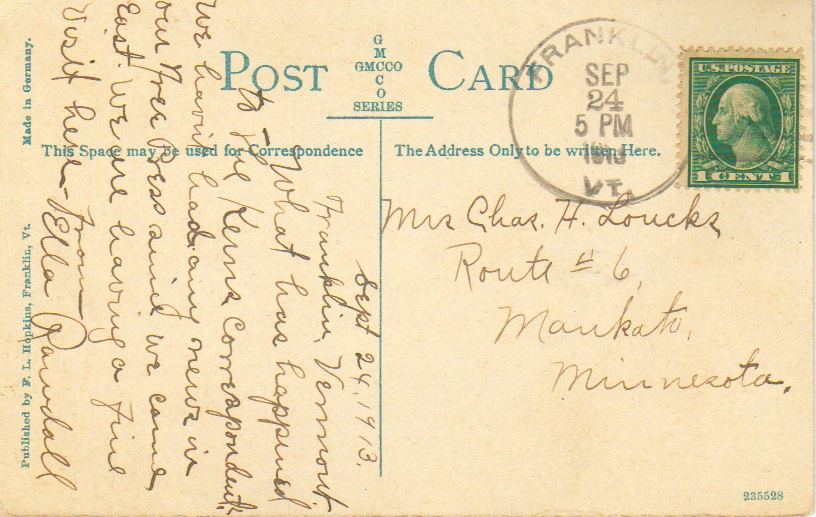 POST CARD
G
M
GMCCO
C
O
SERIES
This Space may be used for Correspondence
The Address Only to be written Here.
FRANKLIN
SEP
24
5 PM
1913
VT.
U.S. POSTAGE
1 CENT 1
Sept 24, 1913.
Franklin, Vermont
What has happened
to the Kerns correspondent.
We havin had any news in
our Free Press since we came
East. We are having a fine
visit here. From
Ella Randall
Mrs Chas. H. Loucks
Route # 6,
Mankato,
Minnesota.
Made in Germany.
Published by F. L. Hopkins, Franklin, Vt.
235528